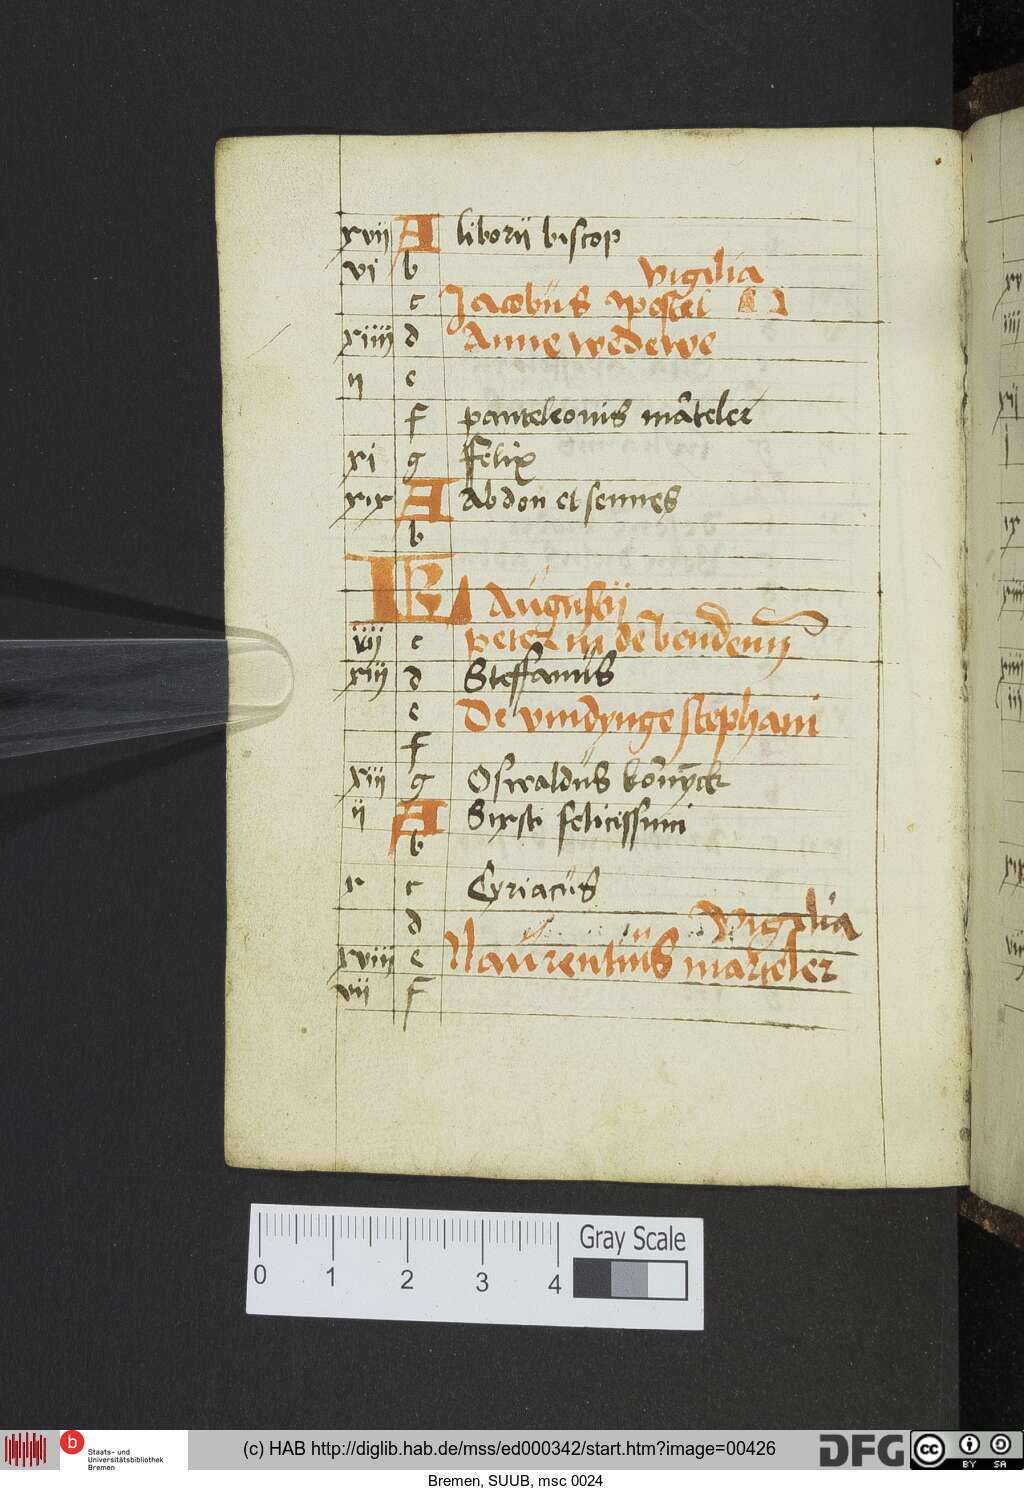 xvii A liborii biscop
vi b vigilia
c Jacobus apostel
xiiii d Anne wedewe
ii e
f panteleonis mãteler
xi g Felix
xix A Abdon et sennes
b
KL Augusti
viij c peter in de bendenn
xiii d Steffanus
e De vindynge stephani
f
xiii g Oswaldus konȳck
ii A Sixsti felicissimi
b
x c Cyriacus
d Vigilia
xviii e Laurentius marteler
vii f
0 1 2 3 4
Gray Scale
b Staats- und
Universitätsbibliothek
Bremen
(c) HAB http://diglib.hab.de/mss/ed000342/start.htm?image=00426
DFG
cc BY SA
Bremen, SUUB, msc 0024